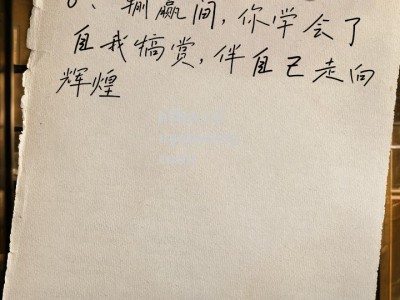 6、输赢间,你学会了
自我犒赏,伴自己走向
辉煌